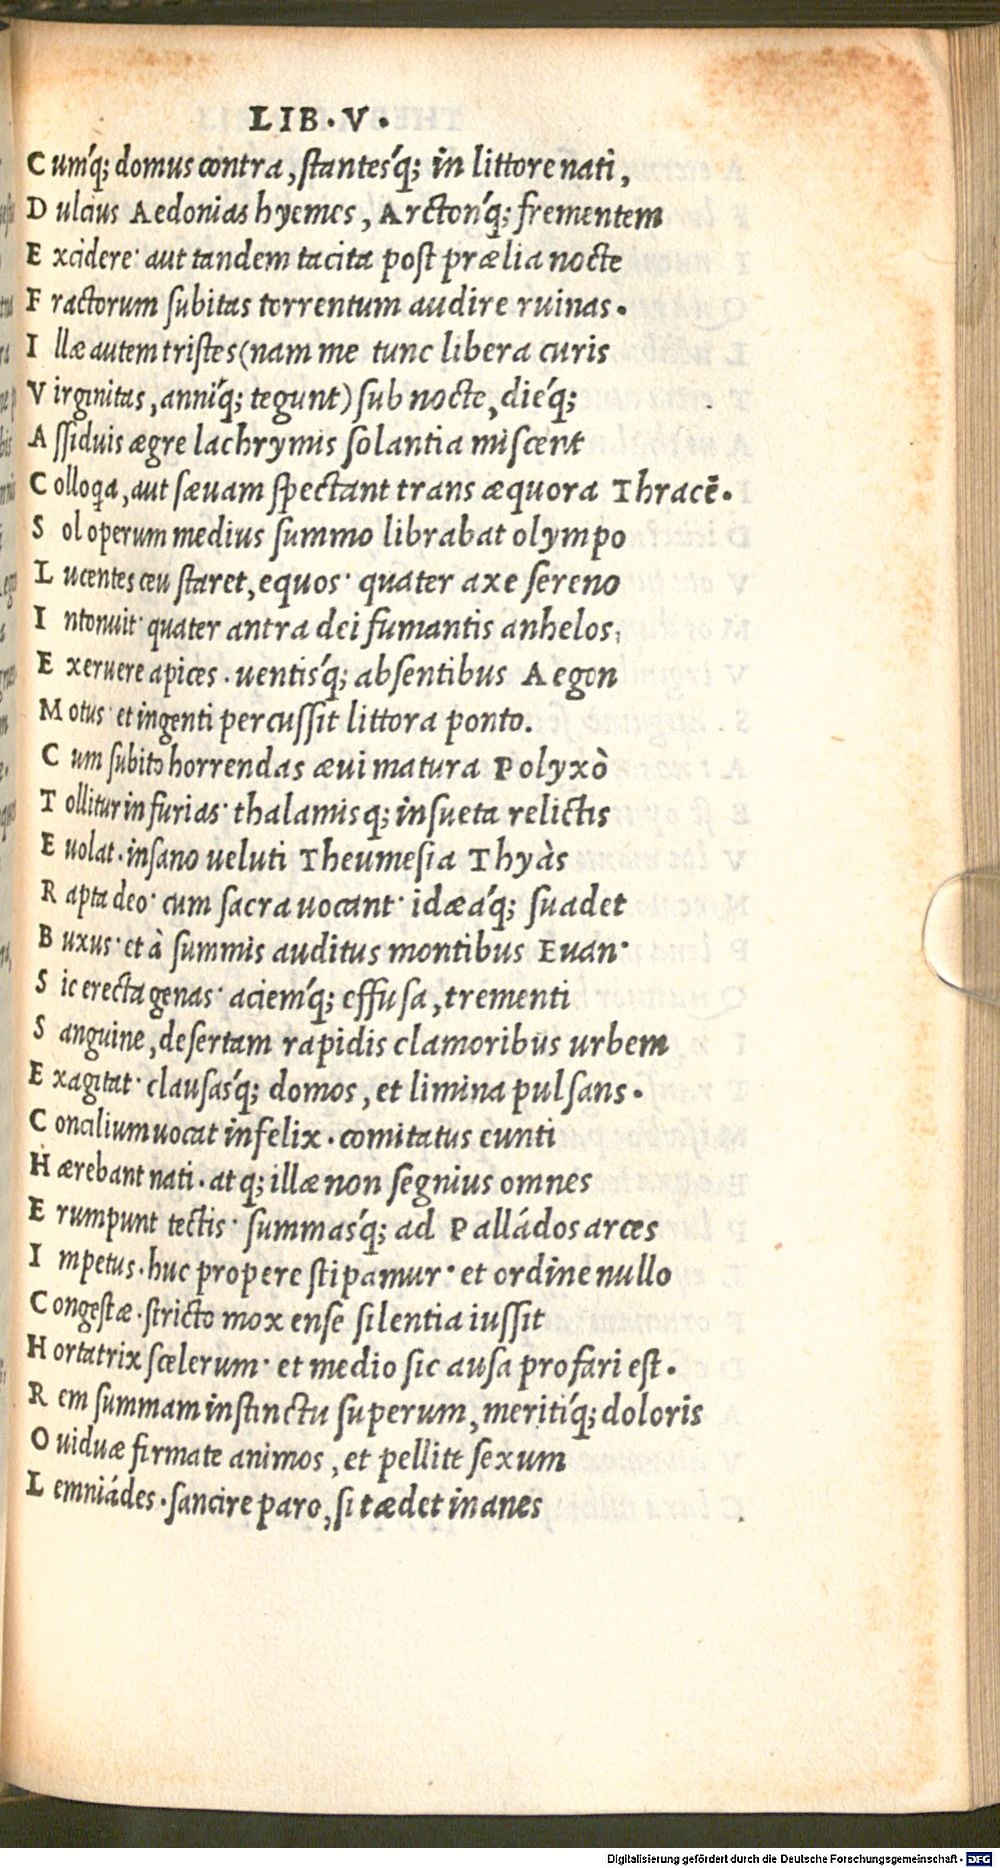 LIB. V.
Cumq́; domus contra, stantesq́; in littore nati,
Dulcius Aedonias hyemes, Arctonq́; frementem
Excidere· aut tandem tacita post prælia nocte
Fractorum subitas torrentum audire ruinas.
Illæ autem tristes (nam me tunc libera curis
Virginitas, anniq́; tegunt) sub nocte, dieq́;
Assiduis ægre lachrymis solantia miscent
Colloqa, aut sæuam spectant trans æquora Thracē.
Sol operum medius summo librabat olympo
Lucentes ceu staret, equos· quater axe sereno
Intonuit· quater antra dei fumantis anhelos,
Exeruere apices. uentisq́; absentibus Aegon
Motus· et ingenti percussit littora ponto.
Cum subito horrendas æui matura Polyxò
Tollitur in furias· thalamisq; insueta relictis
Euolat. insano ueluti Theumesia Thyàs
Rapta deo· cum sacra uocant· idæaq́; suadet
Buxus· et à summis auditus montibus Euan·
Sic erecta genas· aciemq́; effusa, trementi
Sanguine, desertam rapidis clamoribus urbem
Exagitat· clausasq́; domos, et limina pulsans.
Concilium uocat infelix. comitatus eunti
Hærebant nati. atq; illæ non segnius omnes
Erumpunt tectis· summasq́; ad Palládos arces
Impetus. huc propere stipamur· et ordine nullo
Congestæ. stricto mox ense silentia iussit
Hortatrix scelerum· et medio sic ausa profari est.
Rem summam instinctu superum, meritiq́; doloris
O uiduæ firmate animos, et pellite sexum
Lemniádes. sancire paro, si tædet inanes
Digitalisierung gefördert durch die Deutsche Forschungsgemeinschaft - DFG